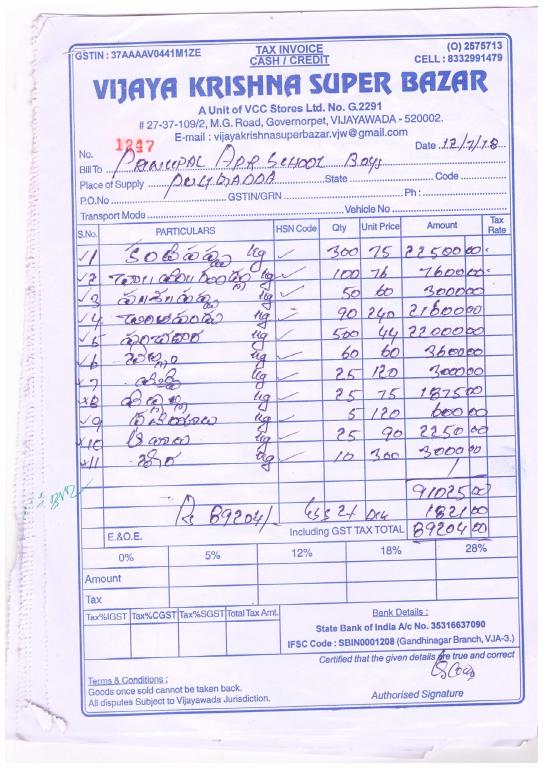 GSTIN : 37AAAAV0441M1ZE TAX INVOICE (O) 2575713
CASH / CREDIT CELL : 8332991479
VIJAYA KRISHNA SUPER BAZAR
A Unit of VCC Stores Ltd. No. G.2291
# 27-37-109/2, M.G. Road, Governorpet, VIJAYAWADA - 520002.
E-mail : vijayakrishnasuperbazar.vjw@gmail.com
No. 1247 Date 12/7/18
Bill To PRINCIPAL APR SCHOOL Boys
Place of Supply State Code
P.O.No GSTIN/GRN Ph :
Transport Mode Vehicle No
S.No. PARTICULARS HSN Code Qty Unit Price Amount Tax Rate
1 కందిపప్పు kg 300 75 22500 00
2 kg 100 76 7600 00
3 kg 50 60 3000 00
4 kg 90 240 21600 00
5 kg 500 44 22000 00
6 kg 60 60 3600 00
7 kg 25 120 3000 00
8 kg 25 75 1875 00
9 kg 5 120 600 00
10 kg 25 90 2250 00
11 kg 10 300 3000 00
91025 00
Rs 89204/- 1821 00
E.& O.E. Including GST TAX TOTAL 89204 00
0% 5% 12% 18% 28%
Amount
Tax
Tax%IGST Tax%CGST Tax%SGST Total Tax Amt.
Bank Details :
State Bank of India A/c No. 35316637090
IFSC Code : SBIN0001208 (Gandhinagar Branch, VJA-3.)
Certified that the given details are true and correct
Terms & Conditions :
Goods once sold cannot be taken back.
All disputes Subject to Vijayawada Jurisdiction.
Authorised Signature